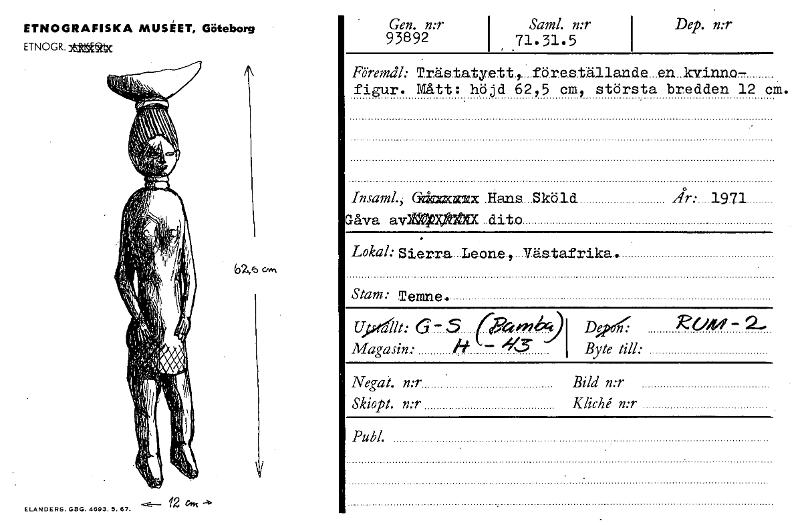 ETNOGRAFISKA MUSÉET, Göteborg
ETNOGR.
62,5 cm
12 cm
ELANDERS. GBG. 4693. 5. 67.
Gen. n:r Saml. n:r Dep. n:r
93892 71.31.5
Föremål: Trästatyett, föreställande en kvinno-
figur. Mått: höjd 62,5 cm, största bredden 12 cm.
Insaml., Hans Sköld År: 1971
Gåva av dito
Lokal: Sierra Leone, Västafrika.
Stam: Temne.
Utställt: G-S (Bamba) Depon: RUM-2
Magasin: H-43 Byte till:
Negat. n:r Bild n:r
Skiopt. n:r Kliché n:r
Publ.